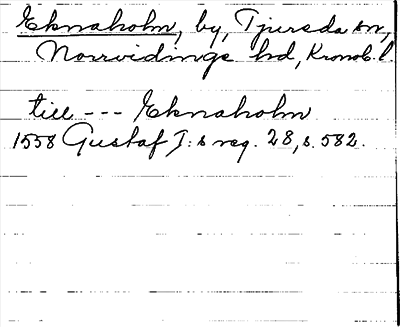 Eknaholm, by, Tjureda sn,
Norrvidinge hd, Kronob. l.
till --- Eknaholm
1558 Gustaf I:s reg. 28, s. 582.